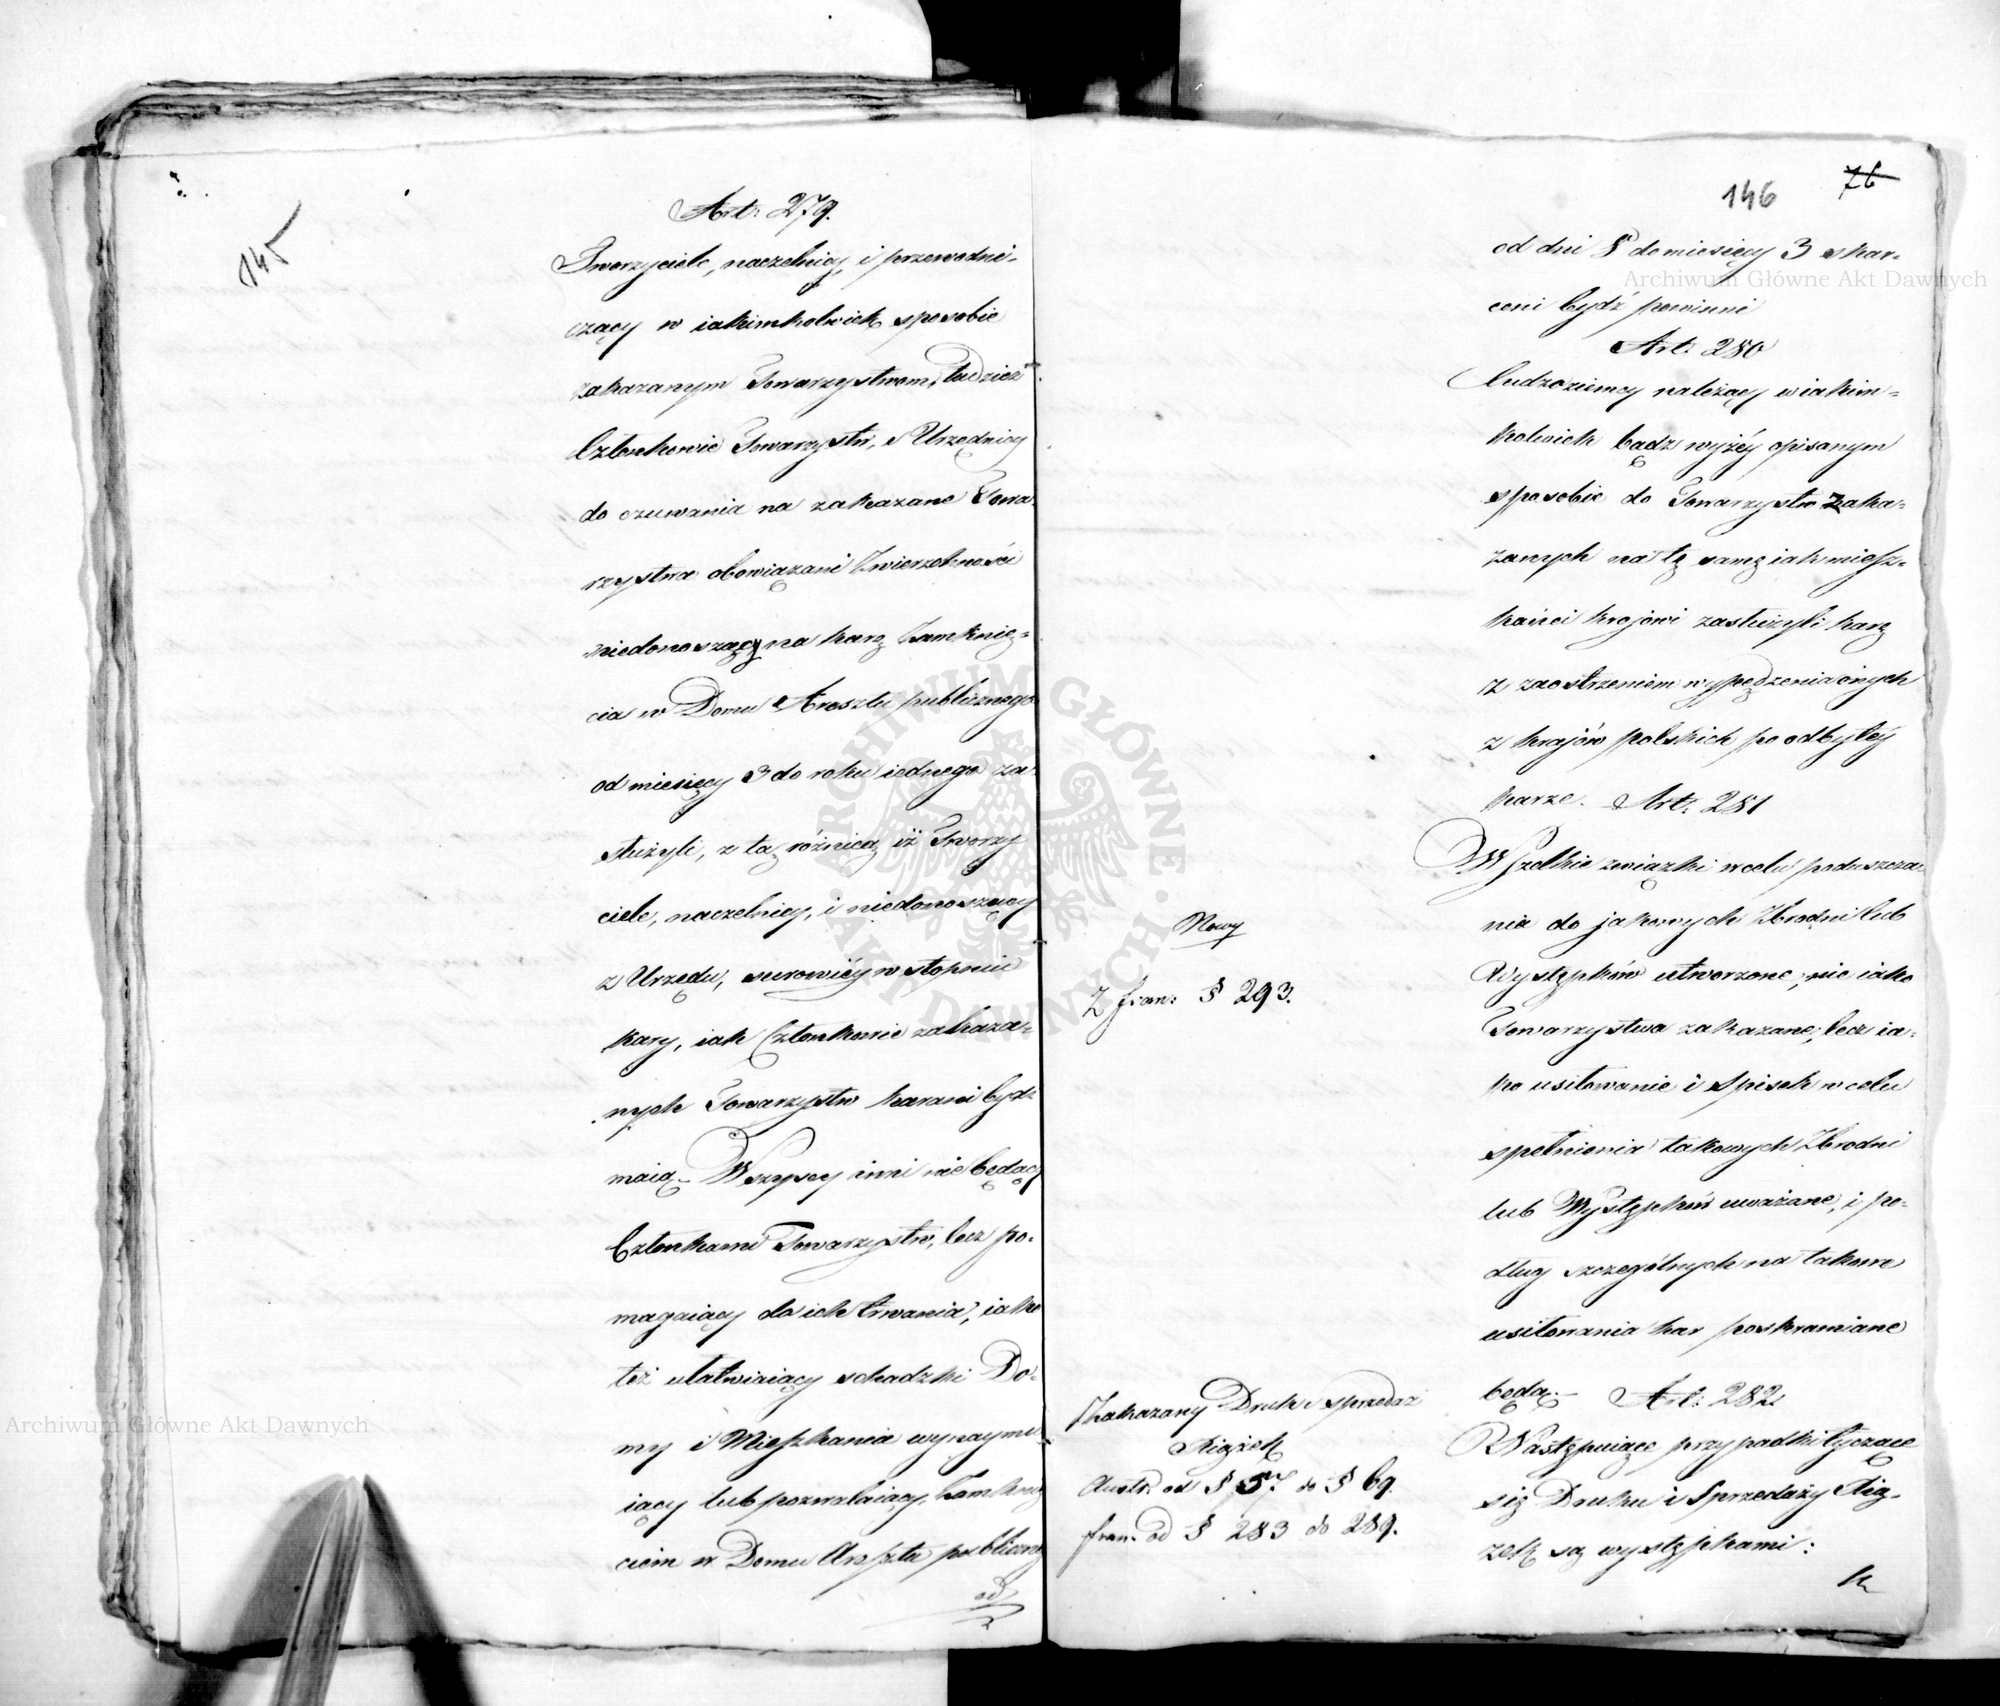 145
Art: 279.
Tworzyciele, naczelnicy, i przewodni-
czący w iakimkolwiek sposobie
zakazanym Towarzystwom, tudzież
Członkowie Towarzystw, i Urzędnicy
do czuwania na zakazane Towa-
rzystwa obowiązani Zwierzchności
niedonoszący na karę Zamknię-
cia w Domu Aresztu publicznego
od miesięcy 3 do roku iednego za-
służyli, z tą różnicą iż Tworzy
ciele, naczelnicy, i niedonoszący
z Urzędu, surowiéy w stopniu
kary, iak Członkowie zakaza-
nych Towarzystw karani bydź
maią. Wszyscy inni nie będący
Członkami Towarzystw, lecz po-
magaiący do ich trwania, iako
też ułatwiaiący schadzki Do-
my i Mieszkania wynaymu-
iący lub pozwalaiący, Zamknię
ciem w Domu Aresztu publiczne
od
146
76
od dni 8 do miesięcy 3 skar-
ceni bydź powinni
Art: 280
Cudzoziemcy należący w iakim-
kolwiek bądz wyżéy opisanym
sposobie do Towarzystw zaka-
zanych na tę samą iak miesz-
kańci krajowi zasłużyli karę
z zaostrzeniem wypędzenia onych
z krajów polskich po odbytéy
karze. Art: 281
Wszelkie związki w celu poduszcza-
nia do jakowych Zbrodni lub
Występków utworzone, nie iako
Towarzystwa zakazane, lecz ia-
ko usiłowanie i Spisek w celu
spełnienia takowych Zbrodni
lub Występków uważane, i po-
dług szczególnych na takowe
usiłowania kar poskramiane
będą. Art: 282
Następuiące przypadki tyczące
się Druku i Sprzedaży Xią-
żek są występkami:
Nowy
Z fran: § 293.
Zakazany Druk i sprzedaż
Xiążek
Austr. od § 57. do § 69.
fran. od § 283 do 289.
Archiwum Główne Akt Dawnych
Archiwum Główne Akt Dawnych
ARCHIWUM GŁÓWNE · AKT DAWNYCH ·